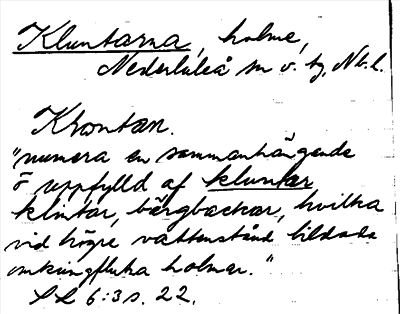 Kluntarna, holme,
Nederluleå sn o. tg, Nb. l.
Klontan.
"numera en sammanhängande
ö uppfylld af kluntar
klintar, bärgbackar, hvilka
vid högre vattenstånd bildade
omkringflutna holmar."
SL 6:3 s. 22.